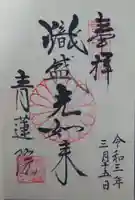 奉拝
令和三年
三月十五日
熾盛光如来
青蓮院